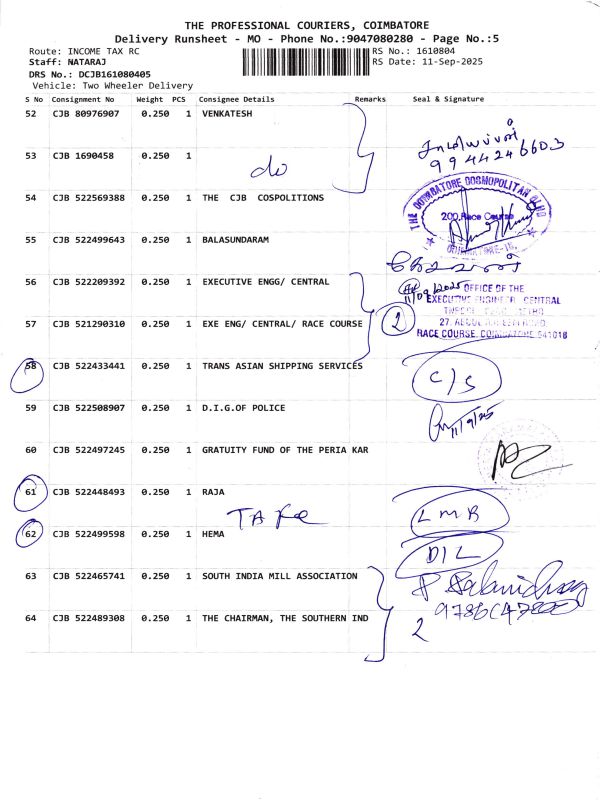 THE PROFESSIONAL COURIERS, COIMBATORE
Delivery Runsheet - MO - Phone No.:9047080280 - Page No.:5
Route: INCOME TAX RC
RS No.: 1610804
Staff: NATARAJ
RS Date: 11-Sep-2025
DRS No.: DCJB161080405
Vehicle: Two Wheeler Delivery
S No Consignment No Weight PCS Consignee Details Remarks Seal & Signature
52 CJB 80976907 0.250 1 VENKATESH
9944246603
53 CJB 1690458 0.250 1
do
54 CJB 522569388 0.250 1 THE CJB COSPOLITIONS
THE COIMBATORE COSMOPOLITAN CLUB
200, Race Course
55 CJB 522499643 0.250 1 BALASUNDARAM
56 CJB 522209392 0.250 1 EXECUTIVE ENGG/ CENTRAL
11/09/2025 OFFICE OF THE
EXECUTIVE ENGINEER CENTRAL
57 CJB 521290310 0.250 1 EXE ENG/ CENTRAL/ RACE COURSE
2
RACE COURSE, COIMBATORE 641018
58 CJB 522433441 0.250 1 TRANS ASIAN SHIPPING SERVICES
C/S
59 CJB 522508907 0.250 1 D.I.G.OF POLICE
11/9/25
60 CJB 522497245 0.250 1 GRATUITY FUND OF THE PERIA KAR
61 CJB 522448493 0.250 1 RAJA
LMB
62 CJB 522499598 0.250 1 HEMA
D/L
63 CJB 522465741 0.250 1 SOUTH INDIA MILL ASSOCIATION
64 CJB 522489308 0.250 1 THE CHAIRMAN, THE SOUTHERN IND
2